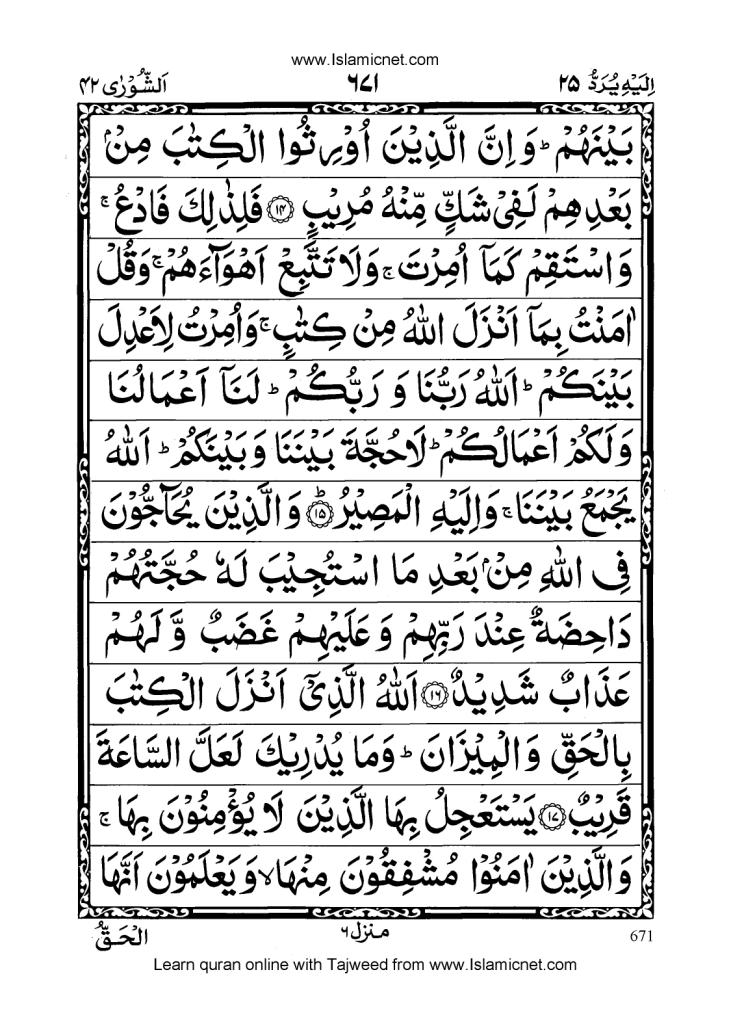 www.Islamicnet.com
اِلَیْهِ یُرَدُّ ۲۵ ۶۷۱ اَلشُّوْرٰی ۴۲
بَیْنَهُمْ ؕ وَ اِنَّ الَّذِیْنَ اُوْرِثُوا الْكِتٰبَ مِنْۢ
بَعْدِهِمْ لَفِیْ شَكٍّ مِّنْهُ مُرِیْبٍ ﴿۱۴﴾ فَلِذٰلِكَ فَادْعُ ۚ
وَ اسْتَقِمْ كَمَاۤ اُمِرْتَ ۚ وَ لَا تَتَّبِعْ اَهْوَآءَهُمْ ۚ وَ قُلْ
اٰمَنْتُ بِمَاۤ اَنْزَلَ اللّٰهُ مِنْ كِتٰبٍ ۚ وَ اُمِرْتُ لِاَعْدِلَ
بَیْنَكُمْ ؕ اَللّٰهُ رَبُّنَا وَ رَبُّكُمْ ؕ لَنَاۤ اَعْمَالُنَا
وَ لَكُمْ اَعْمَالُكُمْ ؕ لَا حُجَّةَ بَیْنَنَا وَ بَیْنَكُمْ ؕ اَللّٰهُ
یَجْمَعُ بَیْنَنَا ۚ وَ اِلَیْهِ الْمَصِیْرُ ﴿ؕ۱۵﴾ وَ الَّذِیْنَ یُحَآجُّوْنَ
فِی اللّٰهِ مِنْۢ بَعْدِ مَا اسْتُجِیْبَ لَهٗ حُجَّتُهُمْ
دَاحِضَةٌ عِنْدَ رَبِّهِمْ وَ عَلَیْهِمْ غَضَبٌ وَّ لَهُمْ
عَذَابٌ شَدِیْدٌ ﴿۱۶﴾ اَللّٰهُ الَّذِیْۤ اَنْزَلَ الْكِتٰبَ
بِالْحَقِّ وَ الْمِیْزَانَ ؕ وَ مَا یُدْرِیْكَ لَعَلَّ السَّاعَةَ
قَرِیْبٌ ﴿۱۷﴾ یَسْتَعْجِلُ بِهَا الَّذِیْنَ لَا یُؤْمِنُوْنَ بِهَا ۚ
وَ الَّذِیْنَ اٰمَنُوْا مُشْفِقُوْنَ مِنْهَا ۙ وَ یَعْلَمُوْنَ اَنَّهَا
671 منزل ۶ الْحَقُّ
Learn quran online with Tajweed from www.Islamicnet.com